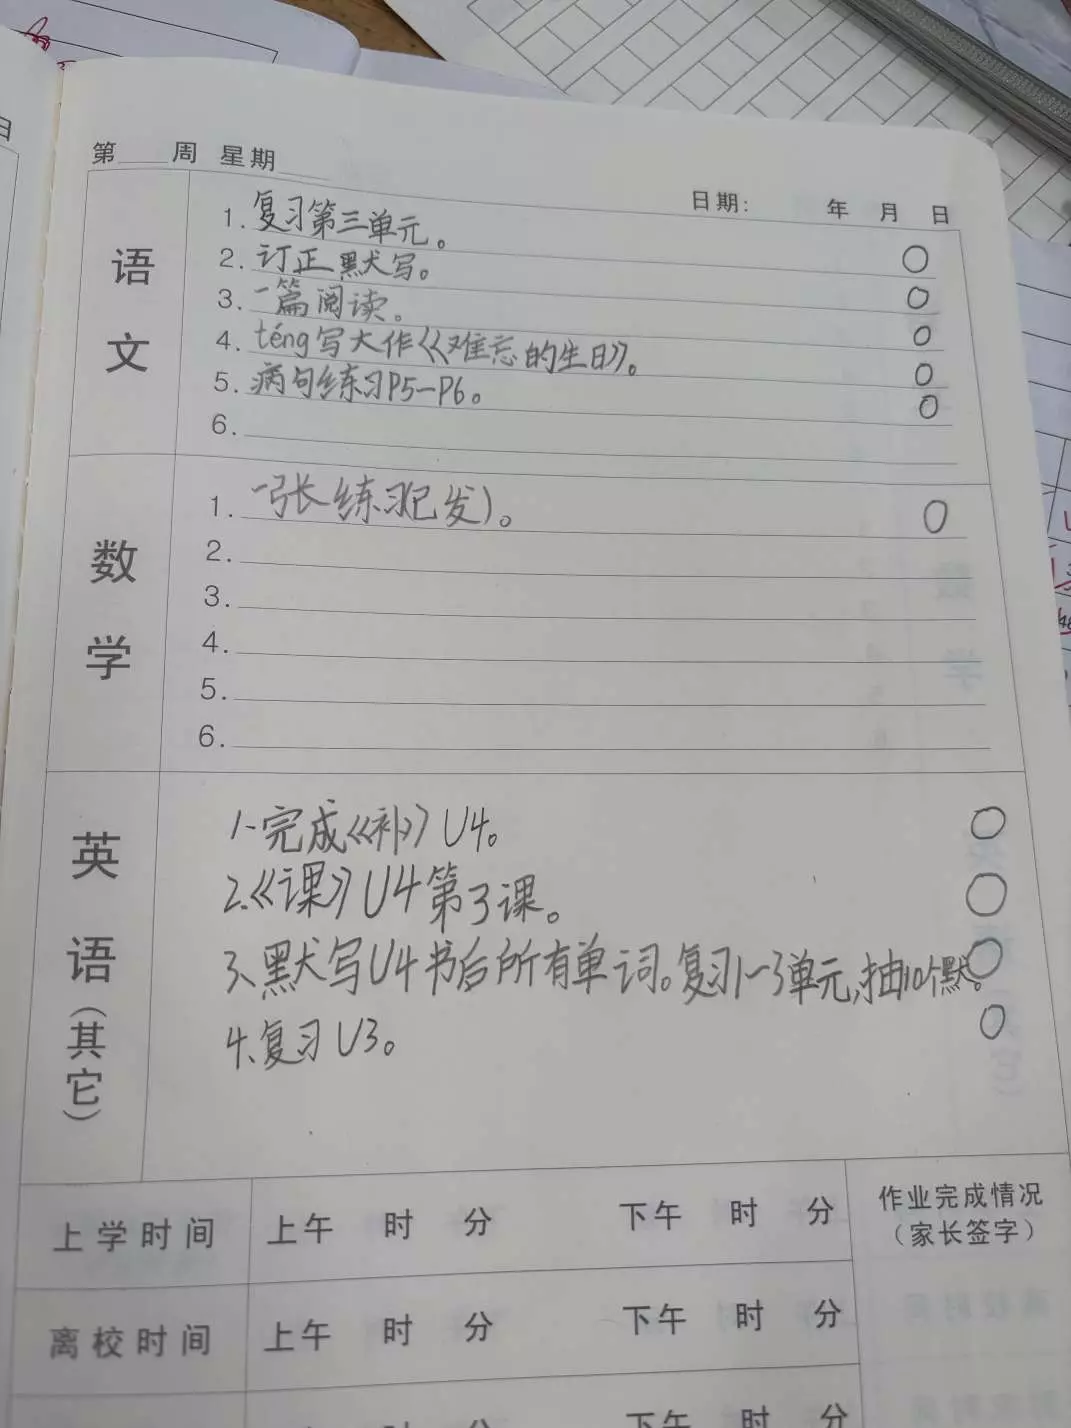 第 周 星期
日期： 年 月 日
语文
1. 复习第三单元。
2. 订正默写。
3. 一篇阅读。
4. téng写大作《难忘的生日》。
5. 病句练习P5—P6。
6.
数学
1. 一张练习(已发)。
2.
3.
4.
5.
6.
英语（其它）
1.完成《补》U4。
2.《课》U4第3课。
3、默写U4书后所有单词。复习1-3单元，抽10个默。
4、复习U3。
上学时间 上午 时 分 下午 时 分
作业完成情况
（家长签字）
离校时间 上午 时 分 下午 时 分
上午 时 分 下午 时 分